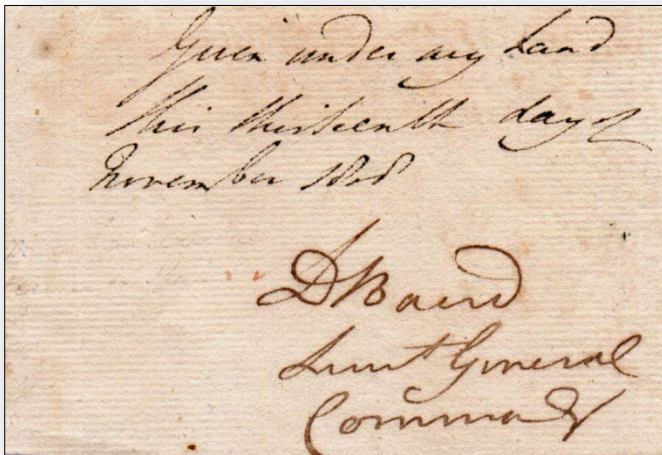 Given under my hand
this thirteenth day of
November 1808
D Baird
Lieut General
Command